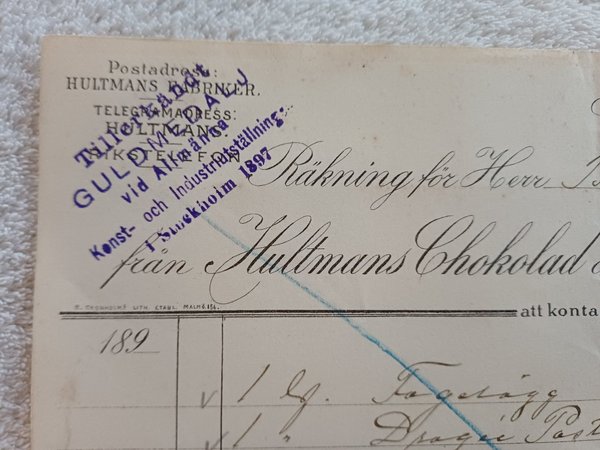 Postadress:
HULTMANS FABRIKER.
TELEGRAMADRESS:
HULTMANS
RIKSTELEFON
Tillerkändt
GULDMEDALJ
vid Allmänna
Konst- och Industriutställning:
i Stockholm 1897
Räkning för Herr
från Hultmans Chokolad
LITH. ETABL. MALMÖ
att konta
189
1 "